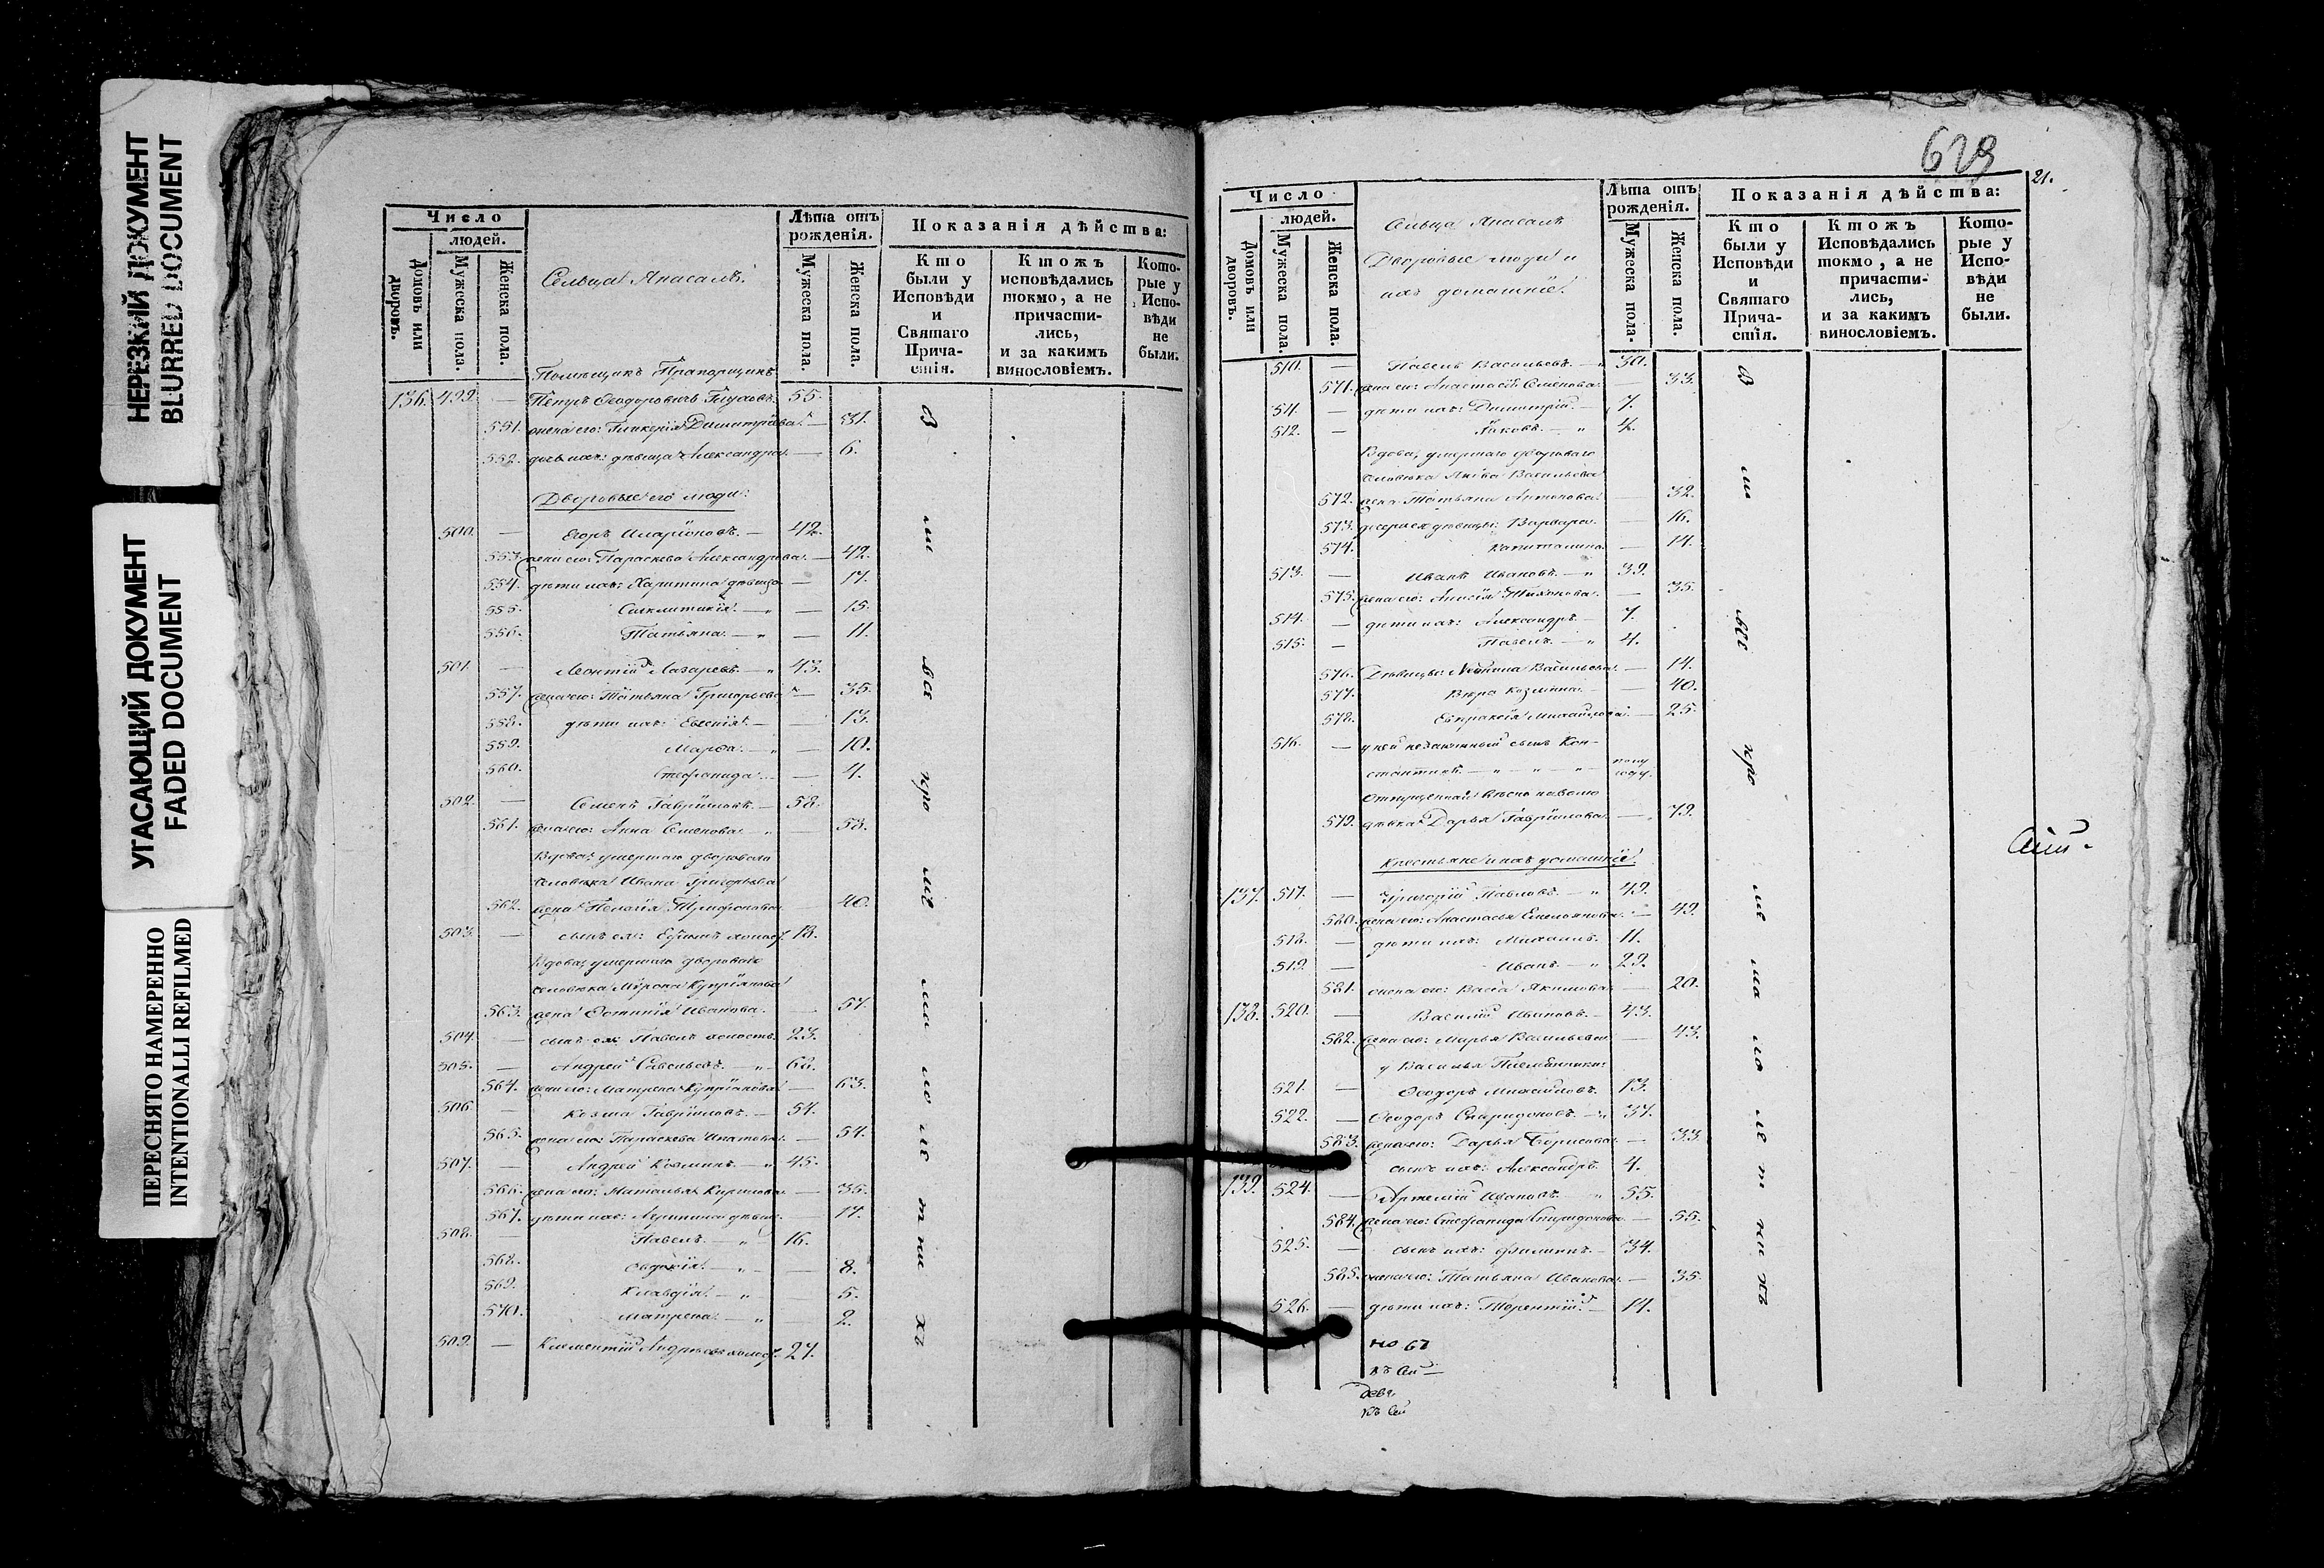 НЕРЕЗКИЙ ДОКУМЕНТ
BLURRED DOCUMENT
УГАСАЮЩИЙ ДОКУМЕНТ
FADED DOCUMENT
ПЕРЕСНЯТО НАМЕРЕННО
INTENTIONALLI REFILMED
Число
людей.
Домовъ или дворовъ.
Мужеска пола.
Женска пола.
Сельца
Лѣта отъ рожденія.
Мужеска пола.
Женска пола.
Показанія дѣйства:
Кто были у Исповѣди и Святаго Причастія.
Ктожъ исповѣдались токмо, а не причастились, и за какимъ винословіемъ.
Которые у Исповѣди не были.
Помѣщикъ Прапорщикъ
136. 499. — Петръ Ѳеодоровичъ Глуховъ. 55.
551. жена его: Гликерія Димитріева. — 31.
552. дочь ихъ: дѣвица Александра. — 6.
Дворовые его люди:
500. — Егоръ Иларіоновъ. — 42.
553. жена его: Параскева Александрова. — 42.
554. дѣти ихъ: Харитина дѣвица — 17.
555. Синклитикія. — 15.
556. Татьяна. — 11.
501. — Леонтій Лазаревъ. — 43.
557. жена его: Татьяна Григорьева — 35.
558. дѣти ихъ: Евгенія. — 13.
559. Марѳа. — 10.
560. Стефанида. — 4.
502. — Семенъ Гавриловъ. — 58.
561. жена его: Анна Семенова. 58.
Вдова, умершаго дворового
человѣка Ивана Григорьева
562. жена Пелагія Трифонова. — 40.
503. — сынъ ея: Ефимъ холост. 18.
Вдова, умершаго дворового
человѣка Мирона Купріянова
563. жена Ѳотинія Иванова. — 57.
504. — сынъ ея: Павелъ холостъ. 23.
505. — Андрей Савельевъ. 62.
564. жена его: Матрена Купріянова. — 63.
506. — Козма Гавриловъ. — 54.
565. жена его: Параскева Ипатова. — 54.
507. — Андрей Козминъ. — 45.
566. жена его: Наталья Кирилова. — 35.
567. дѣти ихъ: — 17.
508. — Павелъ. — 16.
568. Евдокія. — 8.
569. Клавдія. — 5.
570. Матрена. — 2.
509. — Климентій Андреевъ холост. 27.
Вси вы проме ша ло ле т ни хъ
629
21.
Число
людей.
Домовъ или дворовъ.
Мужеска пола.
Женска пола.
Сельца
Дворовые люди и
ихъ домашніе.
Лѣта отъ рожденія.
Мужеска пола.
Женска пола.
Показанія дѣйства:
Кто были у Исповѣди и Святаго Причастія.
Ктожъ Исповѣдались токмо, а не причастились, и за какимъ винословіемъ.
Которые у Исповѣди не были.
510. — Павелъ Васильевъ. 30.
571. жена его: Анастасія Семенова. — 33.
511. — дѣти ихъ: Димитрій. — 7.
512. — Яковъ. — 4.
Вдова, умершаго дворового
человѣка Якова Васильева
572. жена Татьяна Антонова. — 32.
573. дочери ея дѣвицы: Варвара. — 16.
574. Капиталина — 14.
513. — Иванъ Ивановъ. — 39.
575. жена его: Анисія Тихонова. — 35.
514. — дѣти ихъ: Александръ. — 7.
515. — Павелъ. — 4.
576. Дѣвицы: Васильева. — 14.
577. Вѣра Козмина. — 40.
578. Евпраксія Михайлова. — 25.
516. — у ней незаконный сынъ Кон-
стантинъ. — полугоду.
Отпущенная вѣчно на волю
579. дѣвка Дарья Гаврилова. — 79.
Крестьяне и ихъ домашніе.
137. 517. — Григорій Павловъ. — 49.
580. жена его: Анастасья Емельянова. — 49.
518. — дѣти ихъ: Михаилъ. 11.
519. — Иванъ. — 29.
581. жена его: Васса Якимова. — 20.
138. 520. — Василій Ивановъ. — 43.
582. жена его: Марья Васильева. — 43.
у Василья Племянники:
521. — Ѳеодоръ Михайловъ. 13.
522. — Ѳеодоръ Спиридоновъ. 37.
583. жена его: Дарья Борисова. — 33.
сынъ ихъ: Александръ. 4.
139. 524. — Артемій Ивановъ. 55.
584. жена его: Стефанида Спиридонова. — 55.
525. — сынъ ихъ: Филиппъ. — 34.
585. жена его: Татьяна Иванова. — 35.
526. — дѣти ихъ: Терентій. — 14.